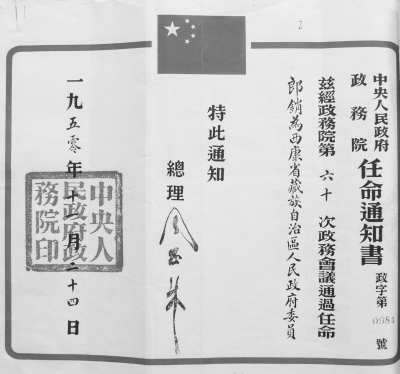 2
中央人民政府
政務院
任命通知書
政字第 0984 號
茲經政務院第六十次政務會議通過任命
郎銷為西康省藏族自治區人民政府委員
特此通知
總理 周恩來
一九五零年十月二十四日
中央人民政府政務院印